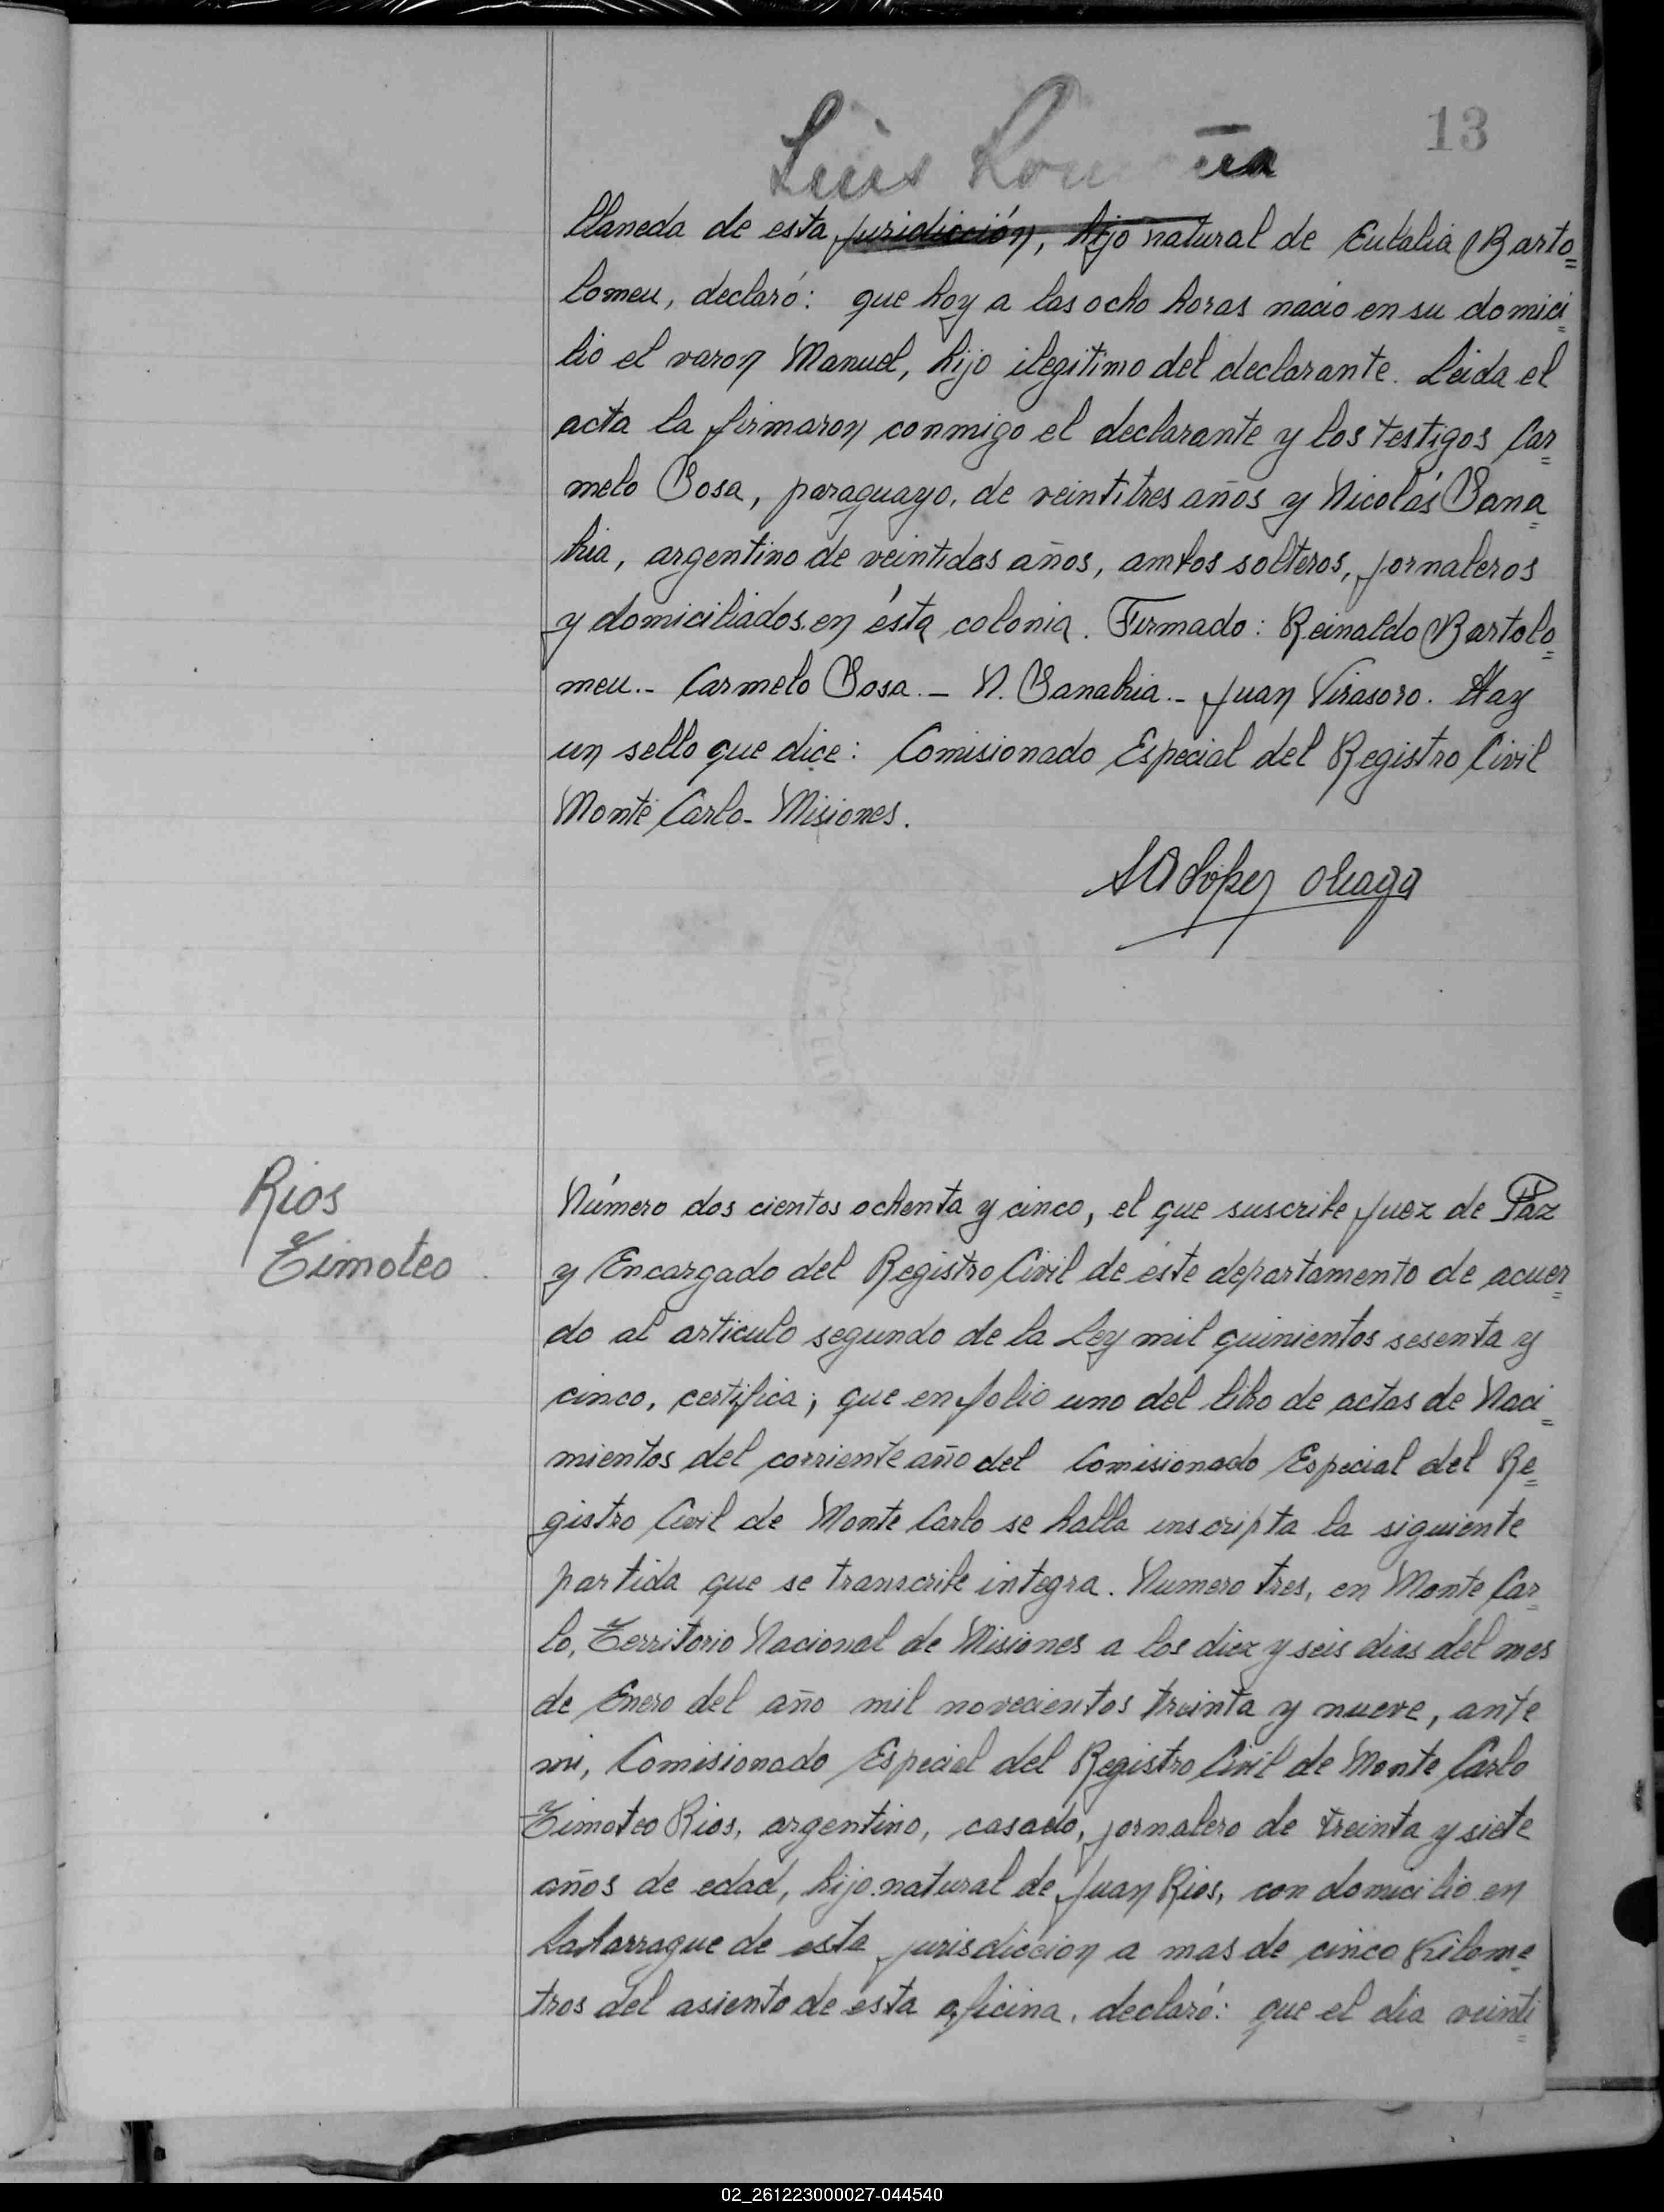 13
Luis
llaneda de esta juridicción, hijo natural de Eulalia Barto=
lomeu, declaró: que hoy a las ocho horas nacio en su domici=
lio el varon Manuel, hijo ilegitimo del declarante. Leida el
acta la firmaron conmigo el declarante y los testigos Car=
melo Sosa, paraguayo, de veintitres años y Nicolás Sana=
bria, argentino de veintidos años, ambos solteros, jornaleros
y domiciliados en ésta colonia. Firmado: Reinaldo Bartolo=
meu.- Carmelo Sosa.- N. Sanabria.- Juan Virasoro. Hay
un sello que dice: Comisionado Especial del Registro Civil
Monte Carlo- Misiones.
López
Rios
Timoteo
Número dos cientos ochenta y cinco, el que suscribe Juez de Paz
y Encargado del Registro Civil de éste departamento de acuer=
do al articulo segundo de la Ley mil quinientos sesenta y
cinco, certifica; que en folio uno del libro de actas de Naci=
mientos del corriente año del Comisionado Especial del Re=
gistro Civil de Monte Carlo se halla inscripta la siguiente
partida que se transcribe integra. Numero tres, en Monte Car=
lo, Territorio Nacional de Misiones a los diez y seis dias del mes
de Enero del año mil novecientos treinta y nueve, ante
mi, Comisionado Especial del Registro Civil de Monte Carlo
Timoteo Rios, argentino, casado, jornalero de treinta y siete
años de edad, hijo natural de Juan Rios, con domicilio en
Laharrague de esta jurisdiccion a mas de cinco Kilome=
tros del asiento de ésta oficina, declaró: que el dia veinti=
02_261223000027-044540